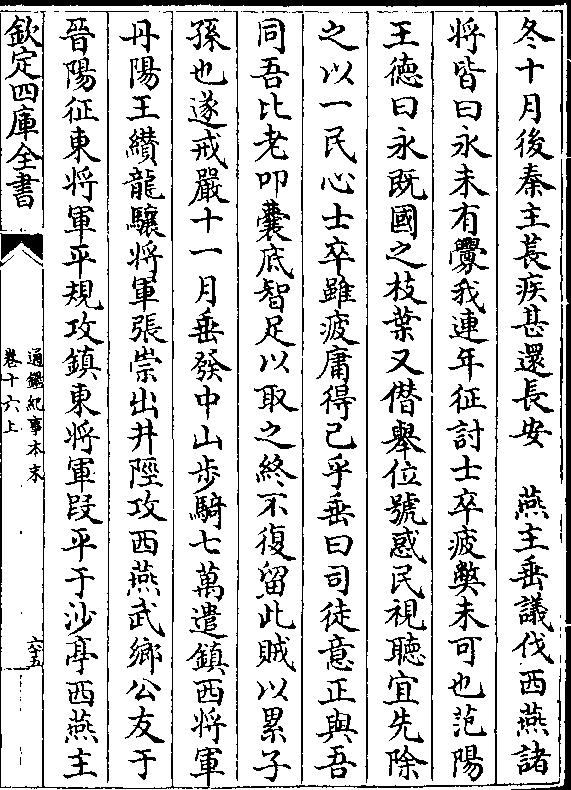 冬十月後秦主萇疾甚還長安　燕主垂議伐西燕諸
將皆曰永未有釁我連年征討士卒疲弊未可也范陽
王德曰永既國之枝葉又僭舉位號惑民視聽宜先除
之以一民心士卒雖疲庸得已乎垂曰司徒意正與吾
同吾比老叩囊底智足以取之終不復留此賊以累子
孫也遂戒嚴十一月垂發中山步騎七萬遣鎮西將軍
丹陽王纘龍驤將軍張崇出井陘攻西燕武鄉公友于
晉陽征東將軍平規攻鎮東將軍段平于沙亭西燕主
欽定四庫全書
通鑑紀事本末
卷十六上
六五